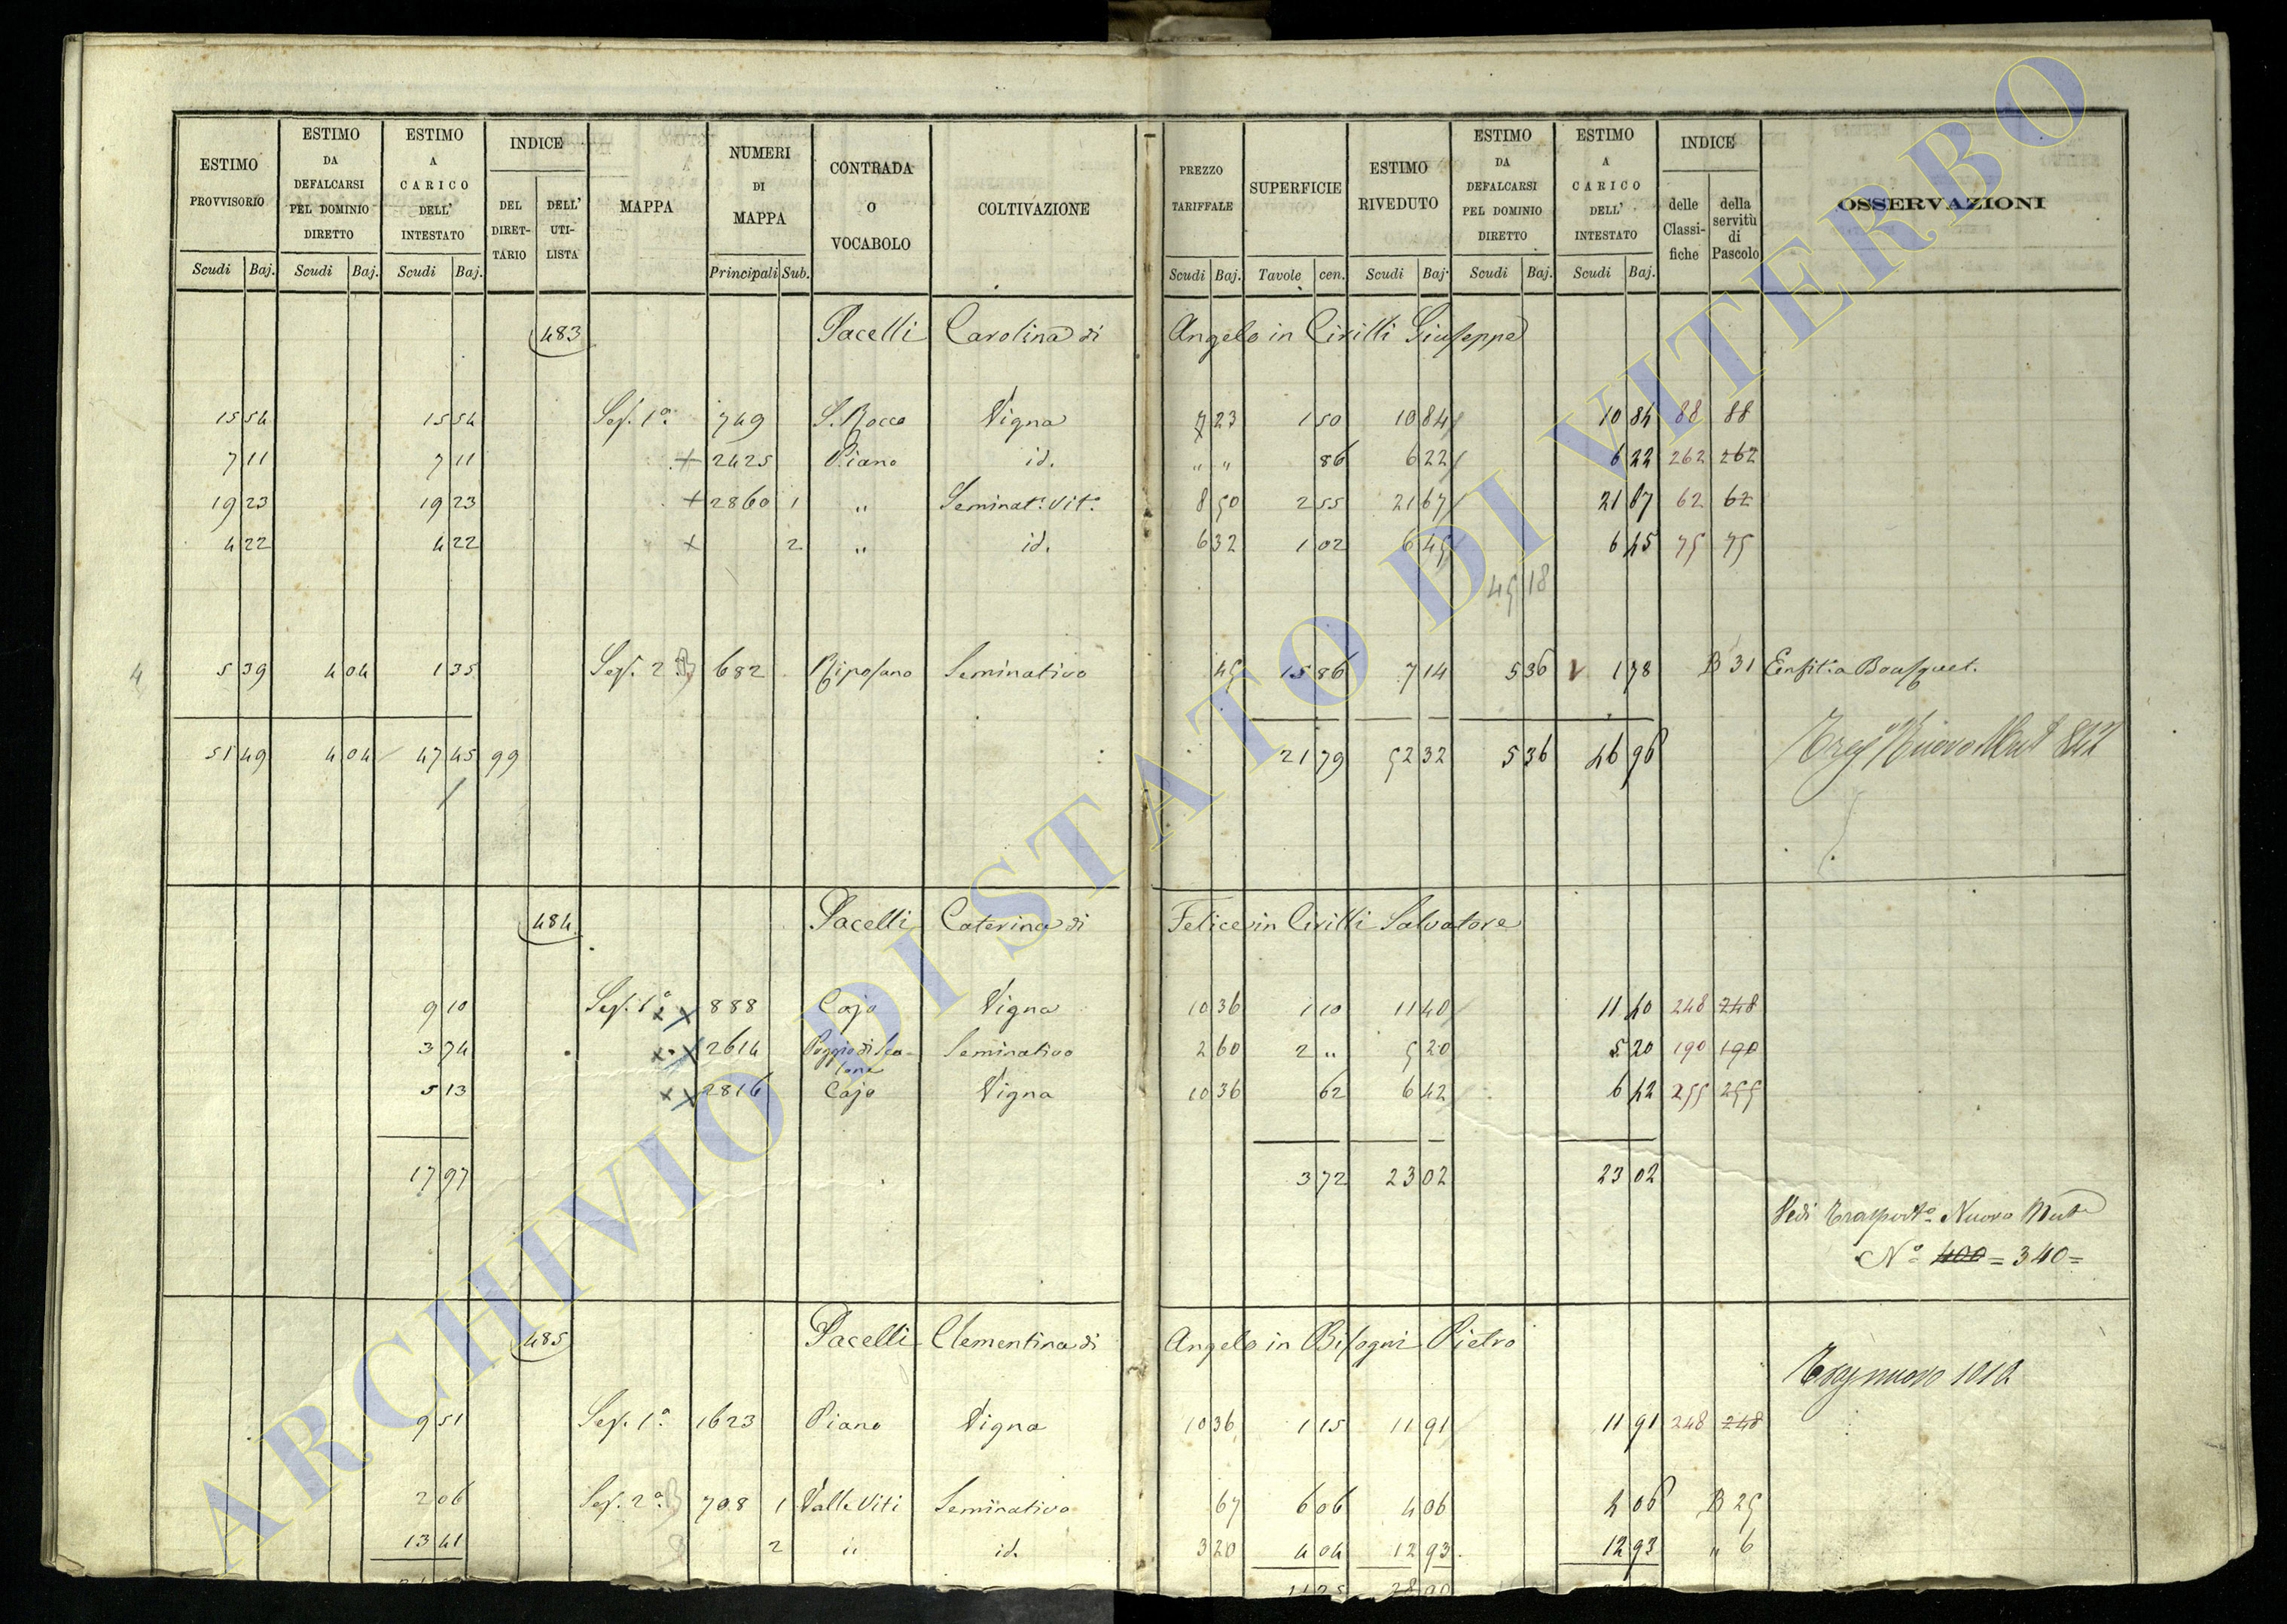 ESTIMO PROVVISORIO | ESTIMO DA DEFALCARSI PEL DOMINIO DIRETTO | ESTIMO A CARICO DELL' INTESTATO | INDICE | MAPPA | NUMERI DI MAPPA | CONTRADA O VOCABOLO | COLTIVAZIONE | PREZZO TARIFFALE | SUPERFICIE | ESTIMO RIVEDUTO | ESTIMO DA DEFALCARSI PEL DOMINIO DIRETTO | ESTIMO A CARICO DELL' INTESTATO | INDICE | OSSERVAZIONI
DEL DIRETTARIO | DELL' UTILISTA | delle Classifiche | della servitù di Pascolo
Scudi | Baj. | Scudi | Baj. | Scudi | Baj. | Principali | Sub. | Scudi | Baj. | Tavole | cen. | Scudi | Baj. | Scudi | Baj. | Scudi | Baj.
483 Pacelli Carolina di Angelo in Cirilli Giuseppe
15 54 | 15 54 | Sez. 1ª | 749 | S. Rocco | Vigna | 7 23 | 1 50 | 10 84 | 10 84 | 88 | 88
7 11 | 7 11 | + 2425 | Piano | id. | " " | 86 | 6 22 | 6 22 | 262 | 262
19 23 | 19 23 | + 2860 | 1 | " | Seminat. Vit. | 8 50 | 2 55 | 21 67 | 21 67 | 62 | 62
4 22 | 4 22 | + | 2 | " | id. | 6 32 | 1 02 | 6 45 | 6 45 | 75 | 75
45 18
4 | 5 39 | 4 04 | 1 35 | Sez. 2ª B | 682 | Riposano | Seminativo | 45 | 15 86 | 7 14 | 5 36 | 1 78 | B 31 | Enfit. a Bousquet.
51 49 | 4 04 | 47 45 | 99 | 21 79 | 52 32 | 5 36 | 46 96 | Nuovo
484 Pacelli Caterina di Felice in Cirilli Salvatore
9 10 | Sez. 1ª | x x 888 | Cajo | Vigna | 10 36 | 1 10 | 11 40 | 11 40 | 248 | 248
3 74 | x x 2614 | Poggio di Sca- | Seminativo | 2 60 | 2 " | 5 20 | 5 20 | 190 | 190
lone
5 13 | x x 2816 | Cajo | Vigna | 10 36 | 62 | 6 42 | 6 42 | 255 | 255
17 97 | 3 72 | 23 02 | 23 02
Vedi Trasporto Nuovo Mut.
Nº 400 = 340 =
485 Pacelli Clementina di Angelo in Bisogni Pietro
Trasp nuovo
9 51 | Sez. 1ª | 1623 | Piano | Vigna | 10 36 | 1 15 | 11 91 | 11 91 | 248 | 248
2 06 | Sez. 2ª B | 708 | 1 | Valle Viti | Seminativo | 67 | 6 06 | 4 06 | 4 06 | B 25
13 41 | 2 | " | id. | 3 20 | 4 04 | 12 93 | 12 93 | " 6
11 25 | 28 90
ARCHIVIO DI STATO DI VITERBO